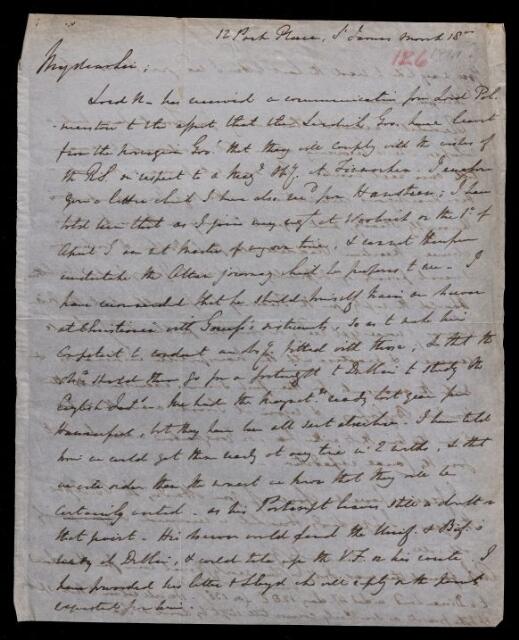 12 Park Place, St James March 18
126
My dear Sir;
Lord N has received a communication from Lord Pal
merston to the effect that the Swedish Gov. have heard
from the Norwegian Gov. that they will comply with the wishes
of the RS in respect to a Mag. Oby. at Finmarken. I enclose
you a letter which I have also rec.d from Hansteen; I have
told him that as I join my at Woolwich on the 1st of
April I am not master of my own time, & cannot therefore
undertake the Altar journey he proposes to me. I
have recommended that he should himself have an
at Christiania with Gauss's instruments, so as to make him
competent to conduct an Oby. fitted with those; & that the
should then go for a fortnight to Dublin to study the
English Inst.s We had the ready last year for
Hammerfest, but they have been all sent elsewhere. I have told
him we could get them ready at any time in 2 months, & that
we order them the moment we know that they will be
certainly wanted. as his Postscript leaves still a doubt on
that point. His would find the Unif. & Bif.s
ready at Dublin, & could take up the V.F. on his route. I
have forwarded his letter to Lloyd who will reply on the point
expected from him.